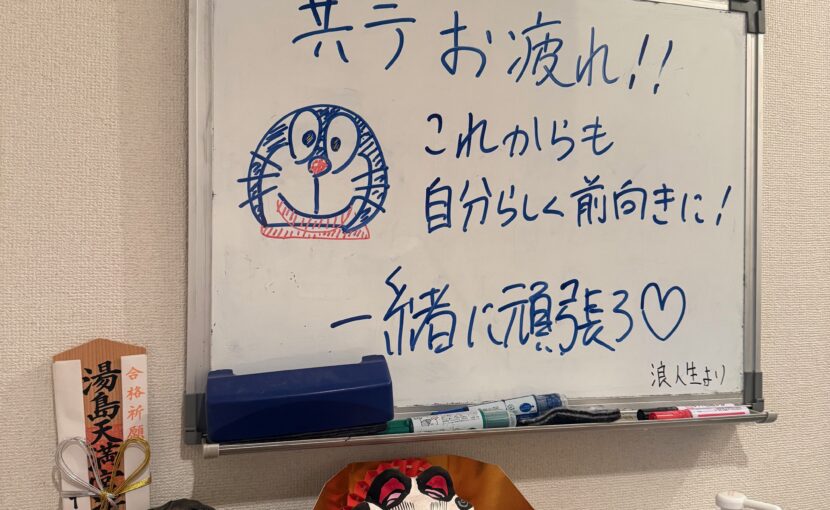 共テ お疲れ!!
これからも
自分らしく前向きに!
一緒に頑張ろ♡
浪人生より
合格祈願
湯島天満宮